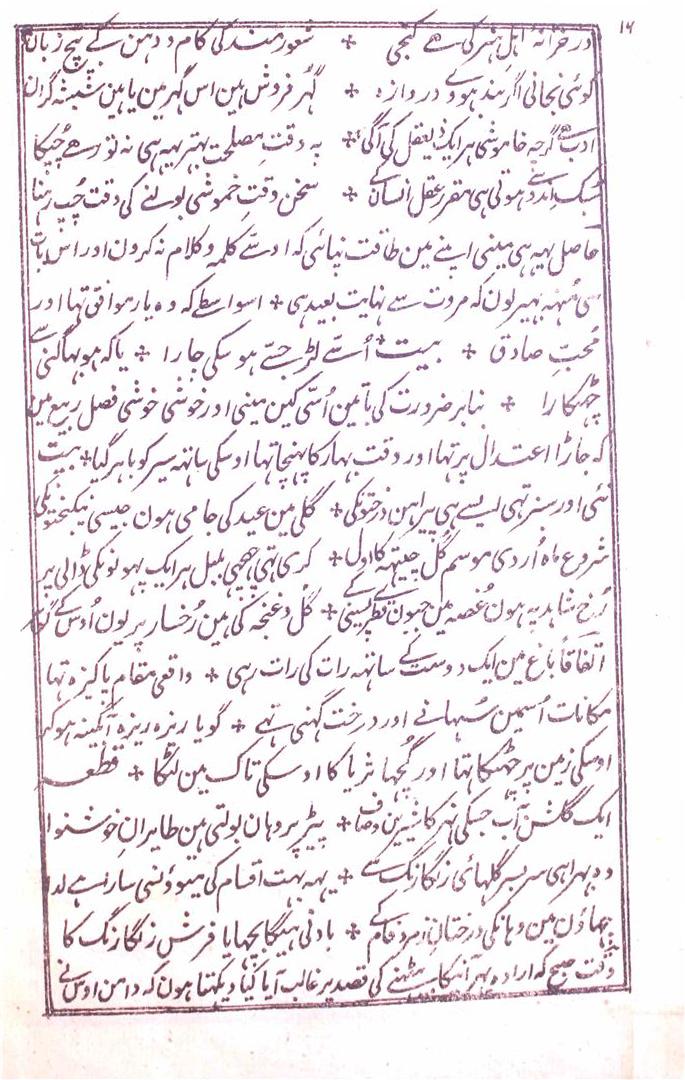 ۱۶
در خزانۂ اہل ہنر کی ہے کنجی ÷ شعور مند کی کام و دہن کے بیچ زبان
کوئی نجانی اگر بند ہووے دروازہ ÷ گہر فروش ہین اس گہر مین یا ہین شیشہ گران
ادب ہے گرچہ خاموشی ہر ایک ذیعقل کی آگی ÷ پہ وقت مصلحت بہتر یہہ ہی نہ تو رہے چپکا
سبک اندو ہوتی ہی مقرر عقل انسان کے ÷ سخن وقت خموشی بولنے کی وقت چپ رہنا
حاصل یہہ ہی مینی اپنے مین طاقت نپائی کہ اوسسے کلمہ و کلام نہ کرون اور اس بات
سی منہہ پہیر لون کہ مروت سے نہایت بعید ہی ÷ اسواسطے کہ وہ یار موافق تہا اور
محب صادق ÷ بیت ÷ اُسّے لڑ جسّے ہو سکی جارا ÷ یا کہ ہو بہاگنی سے
چہٹکارا ÷ بنابر ضرورت کی باتین اُسّی کین مینی اور خوشی خوشی فصل ربیع مین
کہ جاڑا اعتدال پر تہا اور وقت بہار کا پہنچا تہا اوسکی ساتہہ سیر کو باہر گیا ÷ بیت
نئی اور سبز تہی ایسے ہی پیراہن درختونکی ÷ گلی مین عید کی جامی ہون جیسی نیکبختونکی
شروع ماہ اُردی موسم گل چیتہہ کا اول ÷ کری تہی چہچہی بلبل ہر ایک پہولونکی ڈالی پر
رُخ شاہد پہ ہون غصہ مین جیون قطرے پسینی کے ÷ گل و غنچہ کی ہین رخسار پر یون اُوس کے گوہر
اتفاقاً باغ مین ایک دوست کے ساتہہ رات کی رات رہی ÷ واقعی مقام پاکیزہ تہا
مکانات اُسمین سہانے اور درخت گہنی تہے ÷ گویا ریزہ ریزہ آبگینہ ہو کر
اوسکی زمین پر چہٹکا تہا اور گچہا ثریا کا اوسکی تاک مین لٹکا ÷ قطعہ
ایک گلشن آب جسکی نہر کا شیرین و صاف ÷ پیڑ پر وہان بولتی ہین طایران خوشنوا
وہ بہرا ہی سر بسر گلہائی رنگارنگ سے ÷ یہہ بہت اقسام کی میوؤنسی سارا ہے لدا
چہاؤن مین وہانکی درختان زمرد فام کے ÷ باد نی ہیگا بچہایا فرش رنگارنگ کا
وقت صبح کہ ارادہ پہر آنیکا بیٹہنے کی قصد پر غالب آیا کیا دیکہتا ہون کہ دامن اوس نے